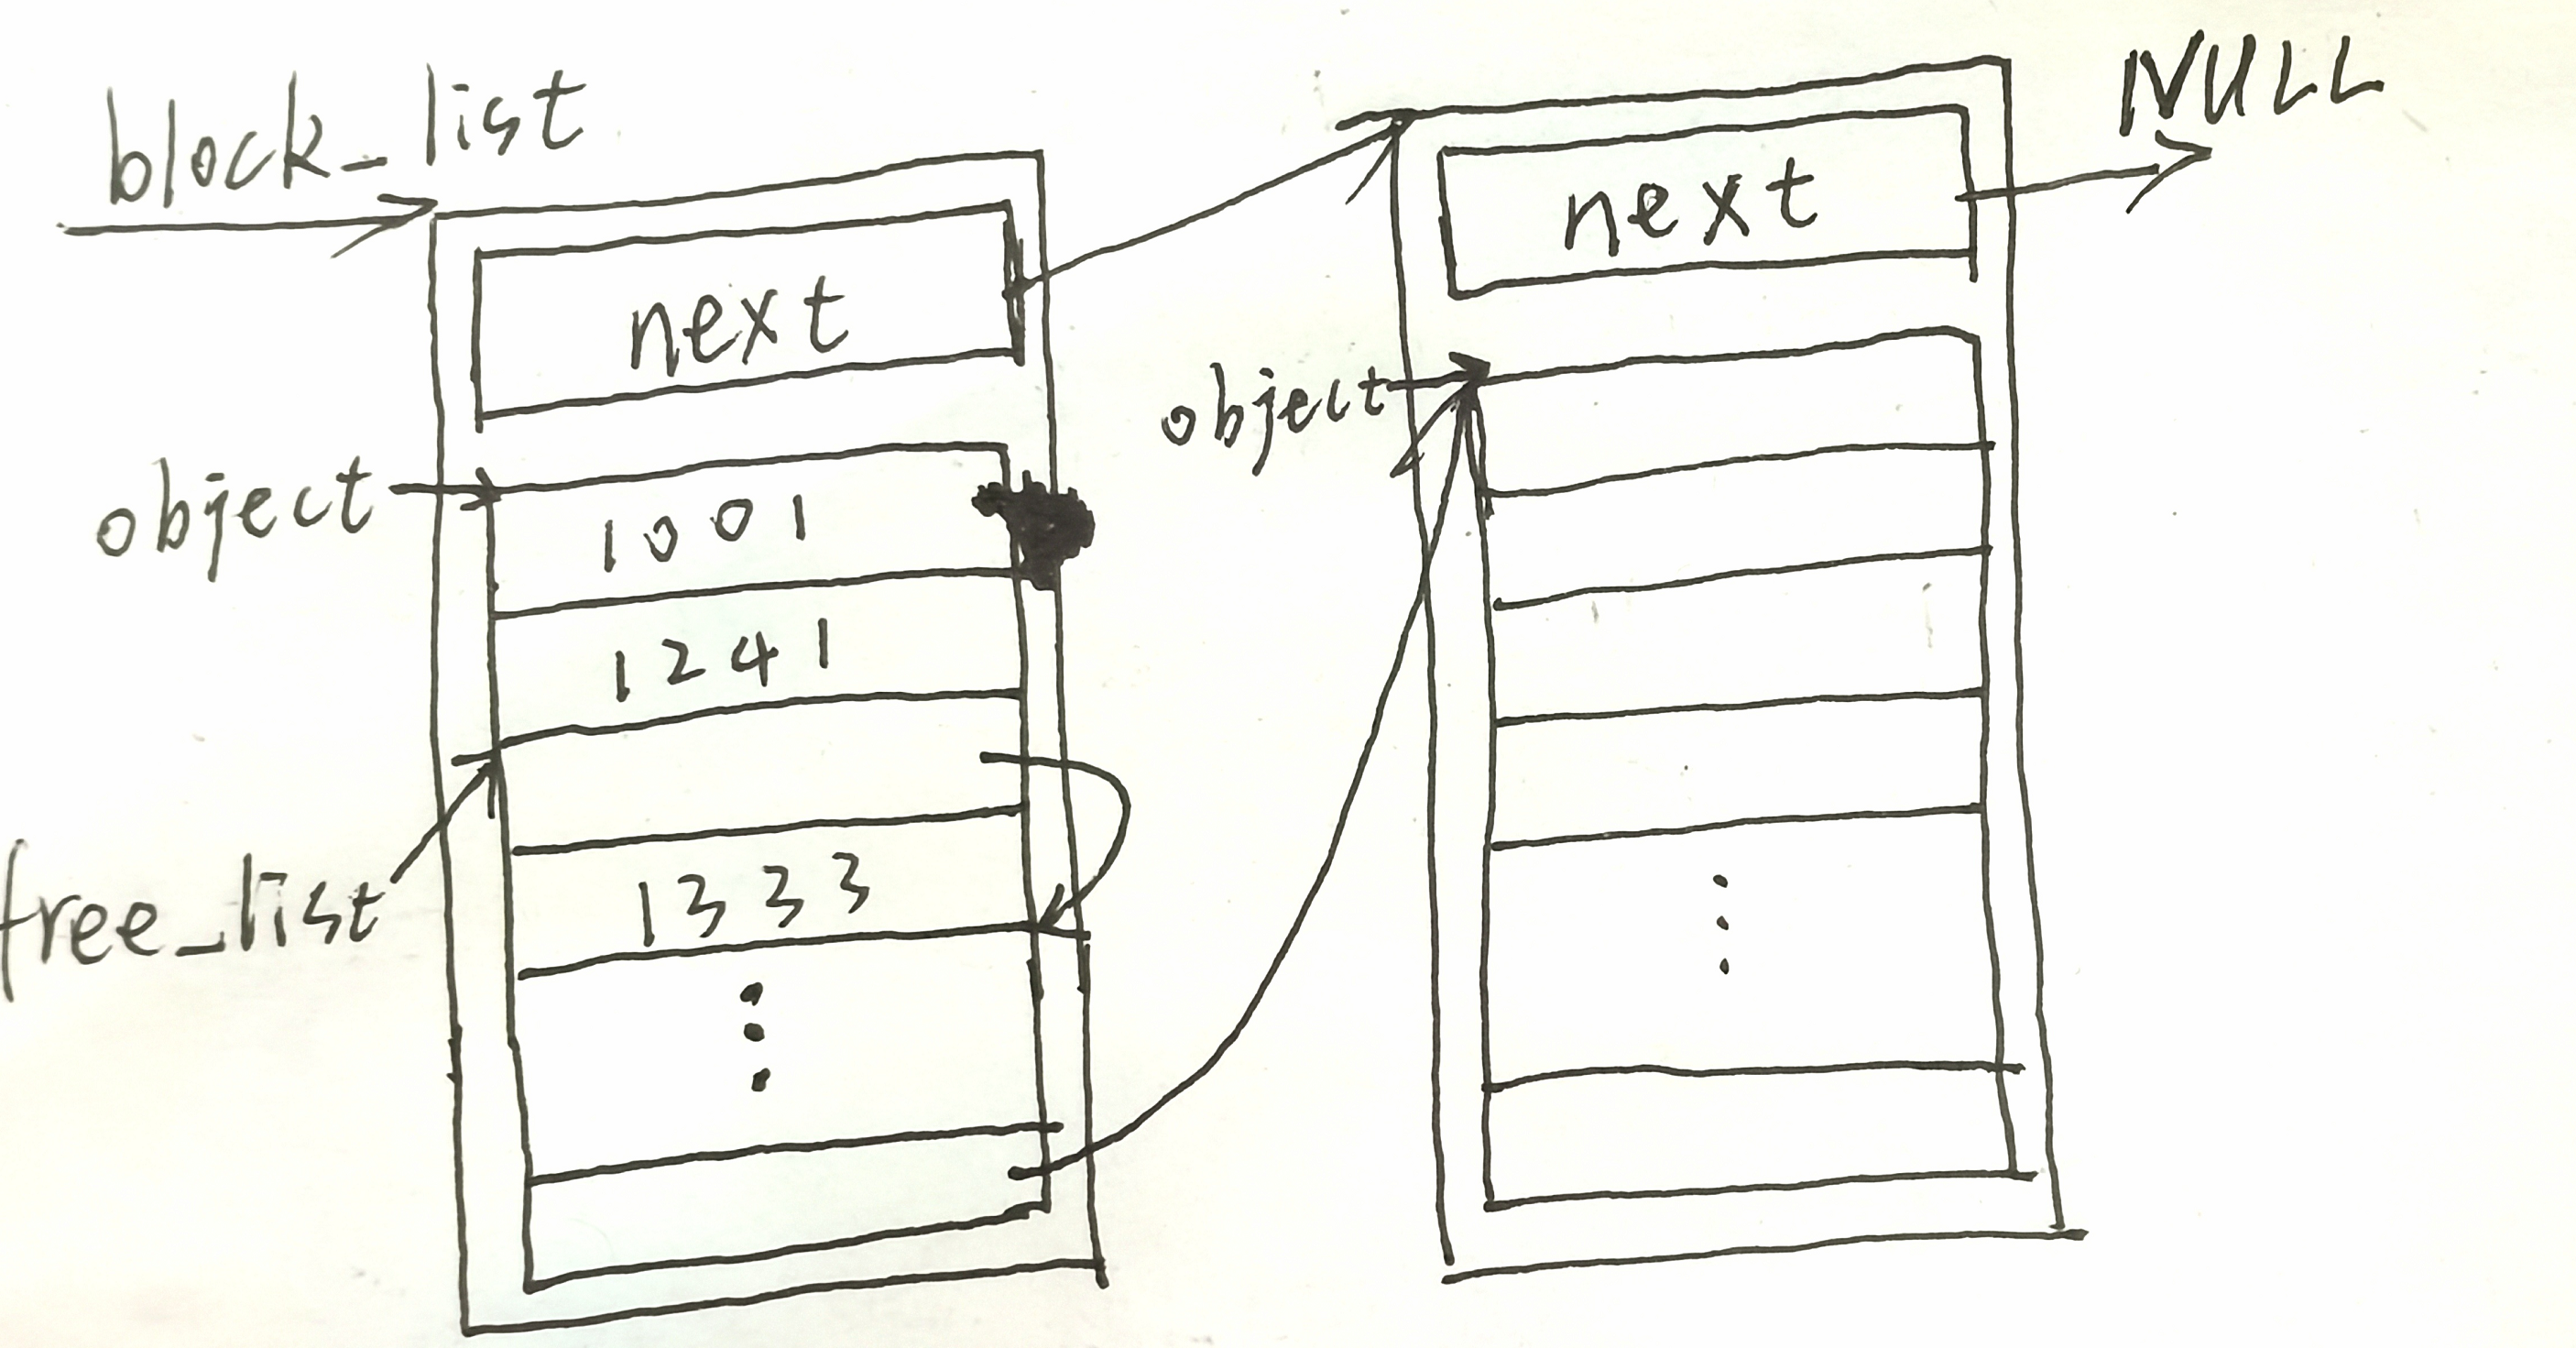 block_list
next
object
1001
1241
free_list
1333
NULL
next
object